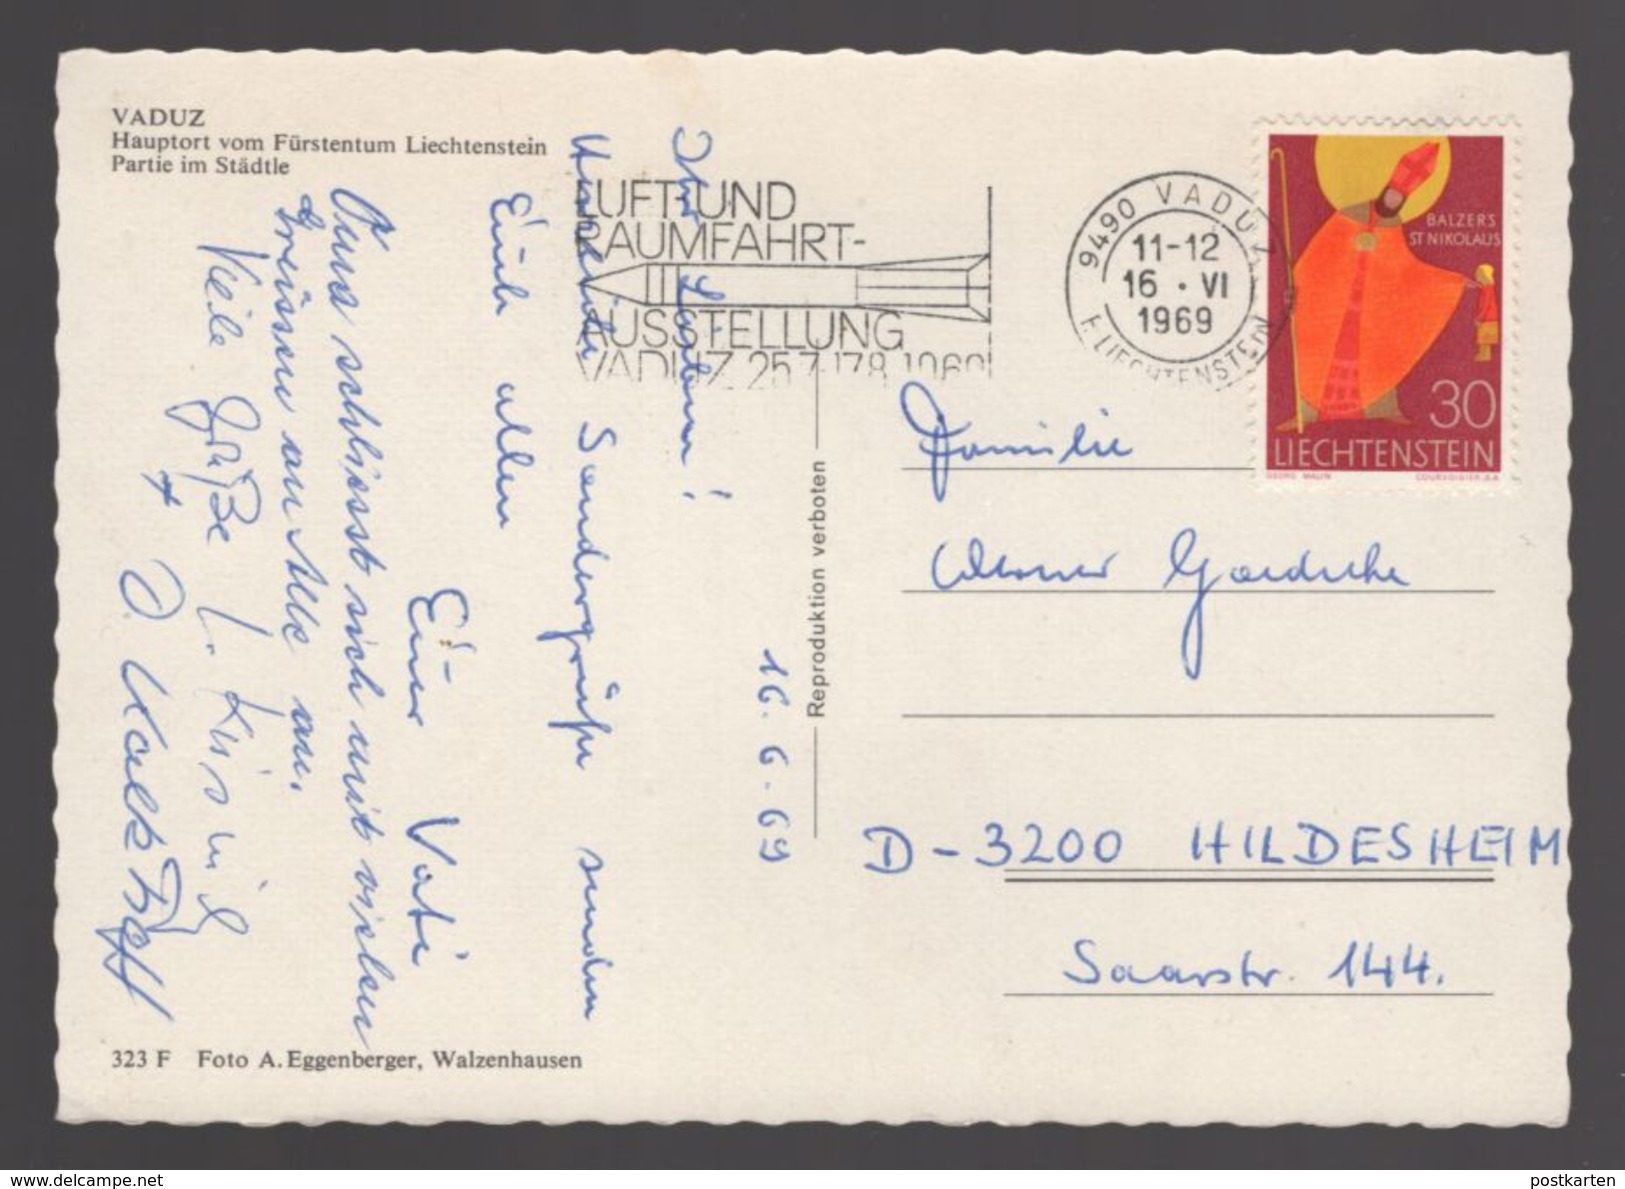 VADUZ
Hauptort vom Fürstentum Liechtenstein
Partie im Städtle
LUFT-UND
RAUMFAHRT-
AUSSTELLUNG
VADUZ 25.7.-17.8.1969
9490 VADUZ
11-12
16 · VI
1969
F. LIECHTENSTEIN
BALZERS
ST NIKOLAUS
30
LIECHTENSTEIN
GEORG MALIN COURVOISIER S.A.
16.6.69
Ihr Lieben!
Sondergrüße senden
Euch allen
Euer Vati
schliesst sich mit vielen
Grüssen an Alle an.
Viele Grüße
Reproduktion verboten
Familie
Werner
D-3200 HILDESHEIM
Saarstr. 144.
323 F Foto A. Eggenberger, Walzenhausen
www.delcampe.net
postkarten